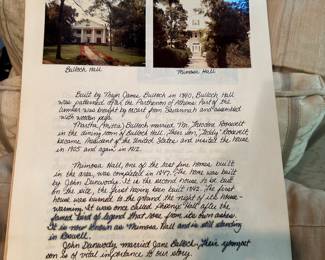 Bulloch Hall
Mimosa Hall
Built by Major James Bulloch in 1840, Bulloch Hall
was patterned after the Parthenon of Athens. Part of the
lumber was brought by oxcart from Savannah and assembled
with wooden pegs.
Martha (Mittie) Bulloch married Mr. Theodore Roosevelt
in the dining room of Bulloch Hall. Their son, "Teddy" Roosevelt
became President of the United States and visited the house
in 1905 and again in 1912.
Mimosa Hall, one of the last fine homes built
in the area, was completed in 1847. The home was built
by John Dunwody. It is the second house to be built
on the site, the first having been built 1842. The first
house was burned to the ground the night of its house-
warming. It was once called Phoenix Hall after the
famed bird of legend that rose from its own ashes.
It is now known as Mimosa Hall and is still standing
in Roswell.
John Dunwody married Jane Bulloch. Their youngest
son is of vital importance to our story.